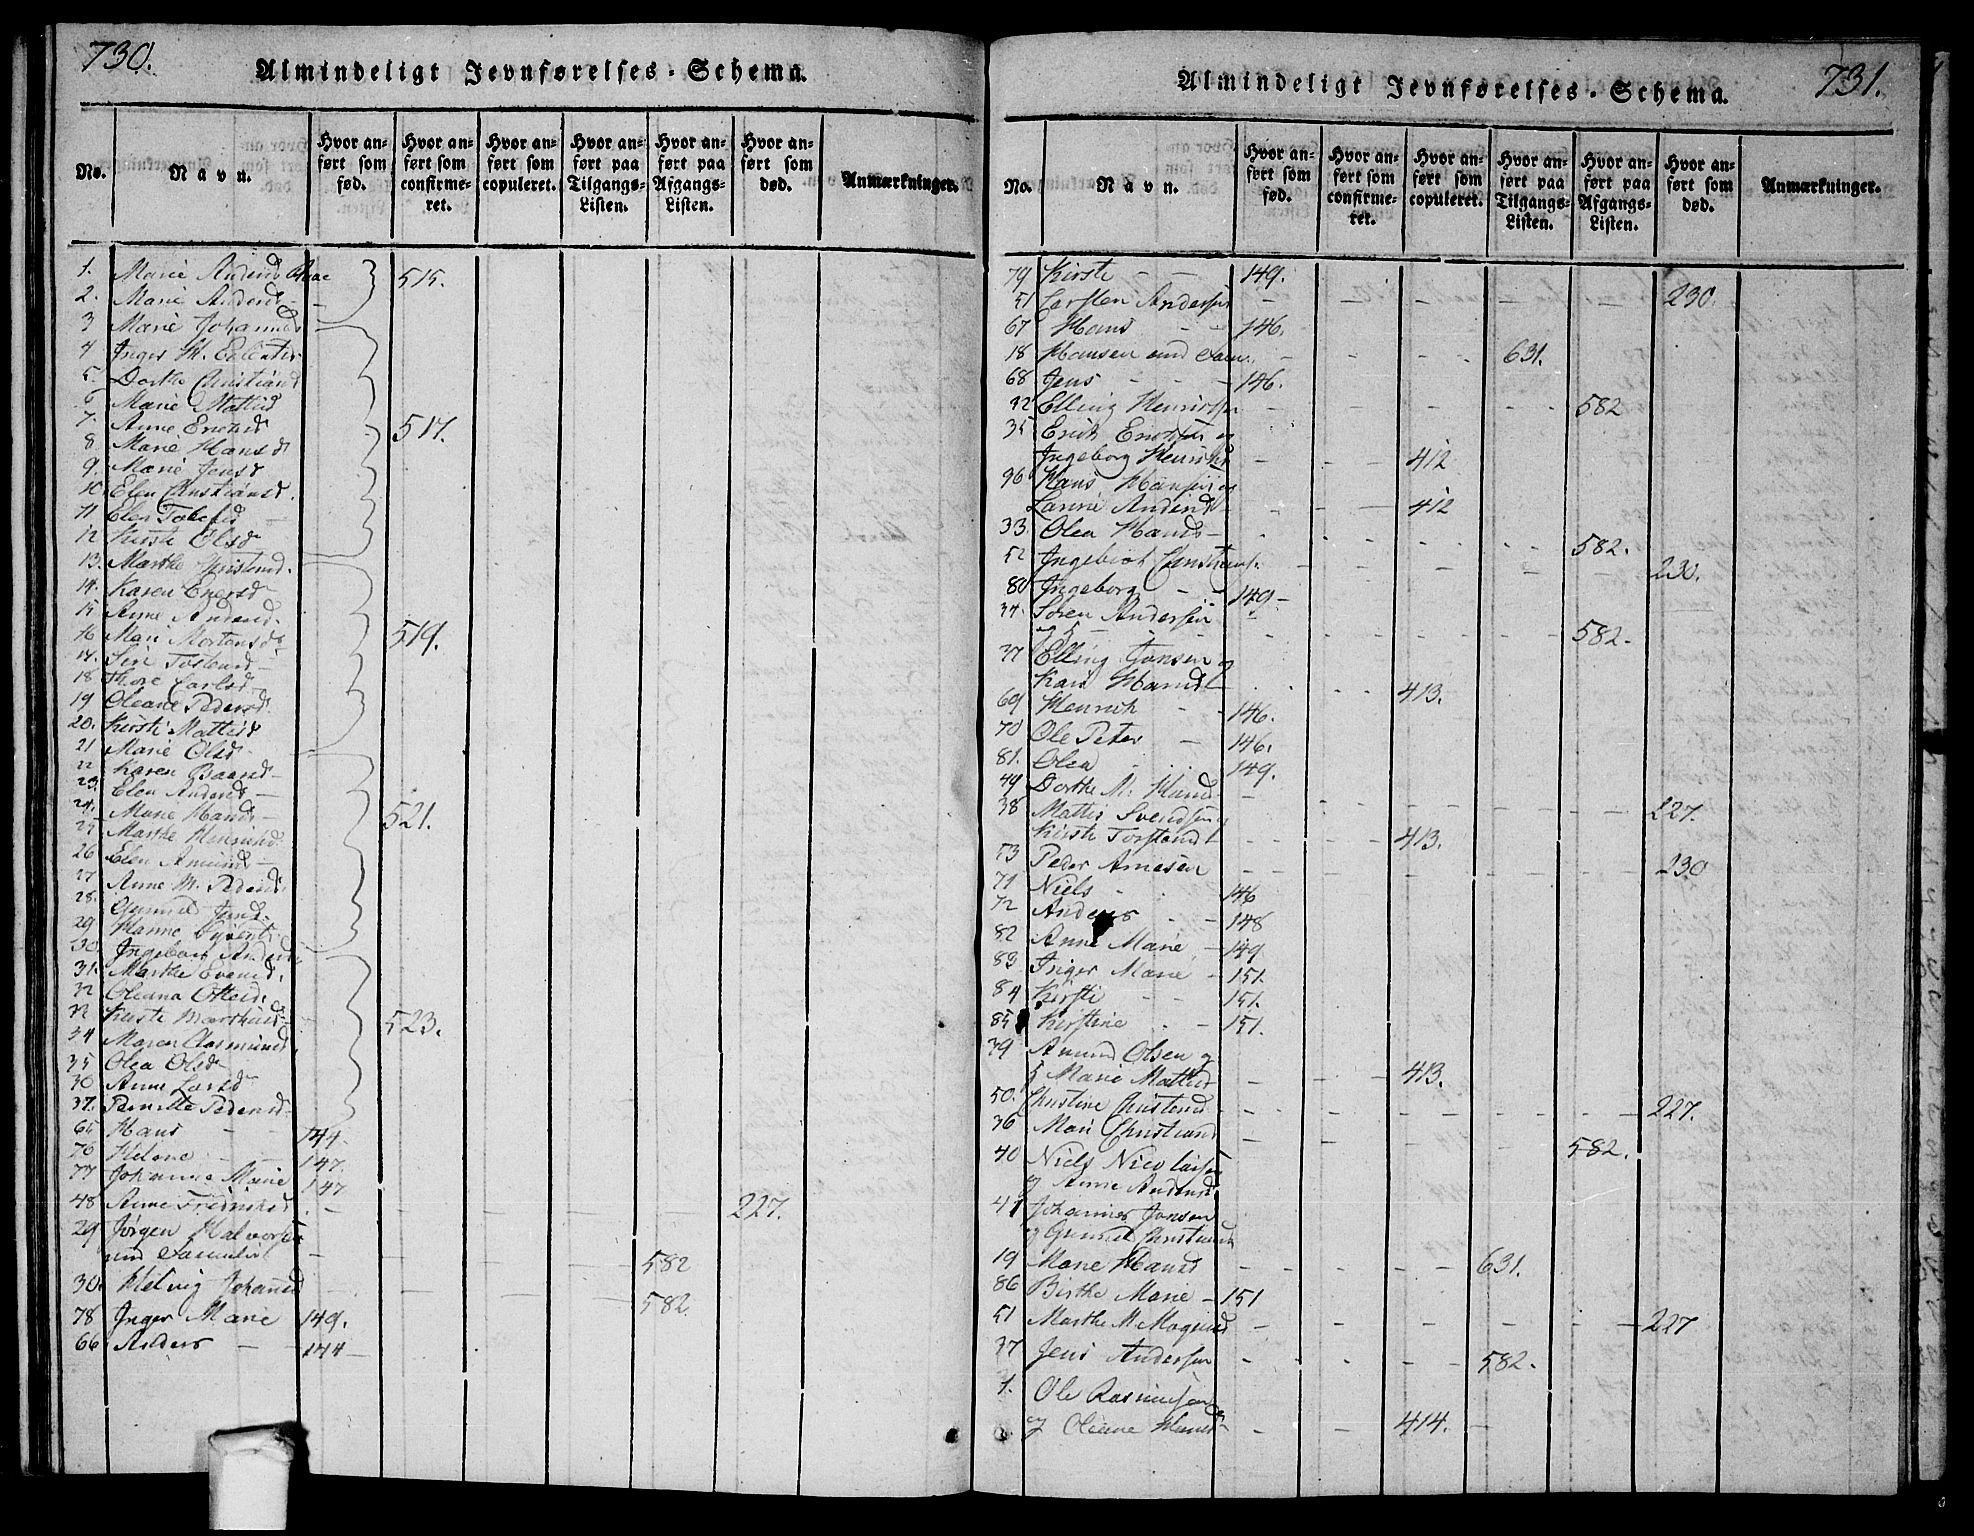 730.
Almindeligt Jevnførelses-Schema.
No.
Navn.
Hvor anført som fød.
Hvor anført som confirmeret.
Hvor anført som copuleret.
Hvor anført paa Tilgangs-Listen.
Hvor anført paa Afgangs-Listen.
Hvor anført som død.
Anmærkninger.
1. Marie Andersd 515.
2. Marie Andersd
3 Marie Johannesd
4 Inger M.
5. Dorthe Christiansd
6 Marie Mattisd
7. Anne Erichsd 517.
8. Marie Hansd
9. Marie Jensd
10. Elen Christiansd.
11 Elen
12 Kirsti Olsd
13. Marthe Christensd.
14. Karen Enersd
15 Anne Andersd.
16 Mari Mortensd 519.
17. Siri Tostensd
18. Thore Carlsd
19 Oleane Pedersd.
20. Kirsti Mattisd
21 Marie Olsd
22 Karen
23. Elen Andersd
24. Marie Hansd 521.
25 Marthe Henrichsd
26 Elen Amundsd
27 Anne M. Pedersd
28. Gunnild Jensd.
29 Hanne
30. Ingeborg Andersd
31. Marthe Evensd.
32 Oleana Ottesd.
32 Kirsti 523.
34 Maren Rasmusd
35 Olea Olsd
36 Anne Larsd
37. Pernille Pedersd
65 Hans 144.
76 Helene 147.
77 Johanne Marie 147
48 Anne Fredrichsd. 227.
29 Jørgen Halvorsen
med Familie 582
30. Helvig Johansd 582
78 Inger Marie 149.
66 Anders 144
731.
Almindeligt Jevnførelses-Schema.
No.
Navn.
Hvor anført som fød.
Hvor anført som confirmeret.
Hvor anført som copuleret.
Hvor anført paa Tilgangs-Listen.
Hvor anført paa Afgangs-Listen.
Hvor anført som død.
Anmærkninger.
79 Kirsti 149.
51 Carsten Andersen 230
67 Hans 146.
18 Hansen med Fam. 631.
68 Jens 146.
32 Elling Henrichsen 582
35 Erich Erichsen og
Ingeborg Henrichsd 412
96 Hans Hansen og
Andersd 412
33. Olea Hansd 582.
52 Christensd. 230.
80 Ingeborg 149
34. Søren Andersen
og 5 582.
37 Elling Jonsen og
Kari Hansd 413.
69 Henrich 146.
70 Ole Peter 146.
81. Olea 149.
49 Dorthe M. Hansd 227.
38 Mattis Svendsen og
Kirsti Torstensd 413.
73 Peder Arnesen 230
71 Niels 146
72 Anders 148
82 Anne Marie 149
83 Inger Marie 151.
84 Kirsti 151.
85 Kirstine 151.
39 Amund Olsen og
Marie Mattisd 413.
50. Christine Christensd 227.
36 Mari Christiansd 582.
40 Niels Nicolaisen
og Anne Andersd
41 Johannes Jonsen
og Gunnild Christiansd
19 Marie Hansd 631.
86 Birthe Marie 151
51 Marthe M. Magnusd 227
37 Jens Andersen 582.
1. Ole Rasmusen
og Oleane Hansd 414.